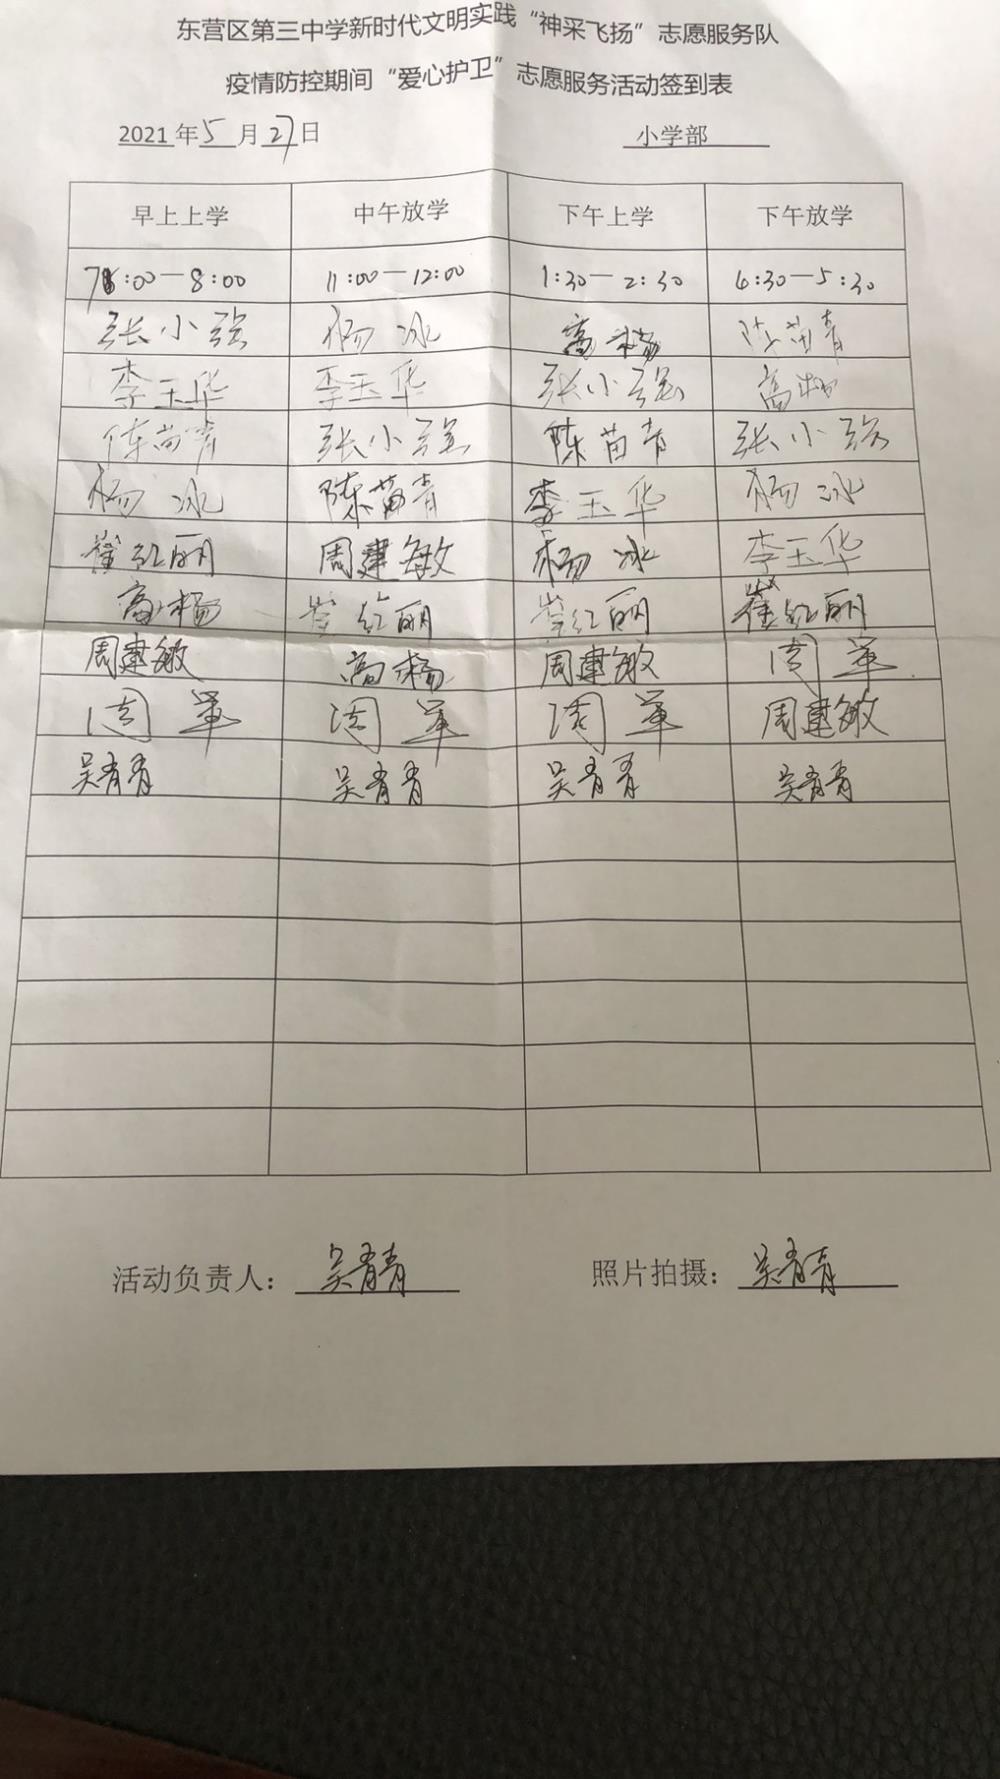 东营区第三中学新时代文明实践“神采飞扬”志愿服务队
疫情防控期间“爱心护卫”志愿服务活动签到表
2021年5月27日 小学部
早上上学 中午放学 下午上学 下午放学
7:00—8:00 11:00—12:00 1:30—2:30 4:30—5:30
张小强 杨冰 高杨 陈苗青
李玉华 李玉华 张小强 高杨
陈苗青 张小强 陈苗青 张小强
杨冰 陈苗青 李玉华 杨冰
崔红丽 周建敏 杨冰 李玉华
高杨 崔红丽 崔红丽 崔红丽
周建敏 高杨 周建敏 周军
周军 周军 周军 周建敏
吴青青 吴青青 吴青青 吴青青
活动负责人：吴青青 照片拍摄：吴青青